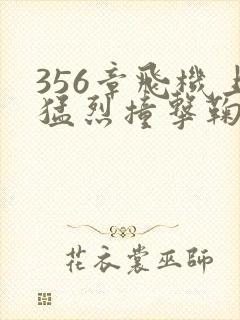 356章飛機
猛烈撞擊鞠
花衣裳巫師